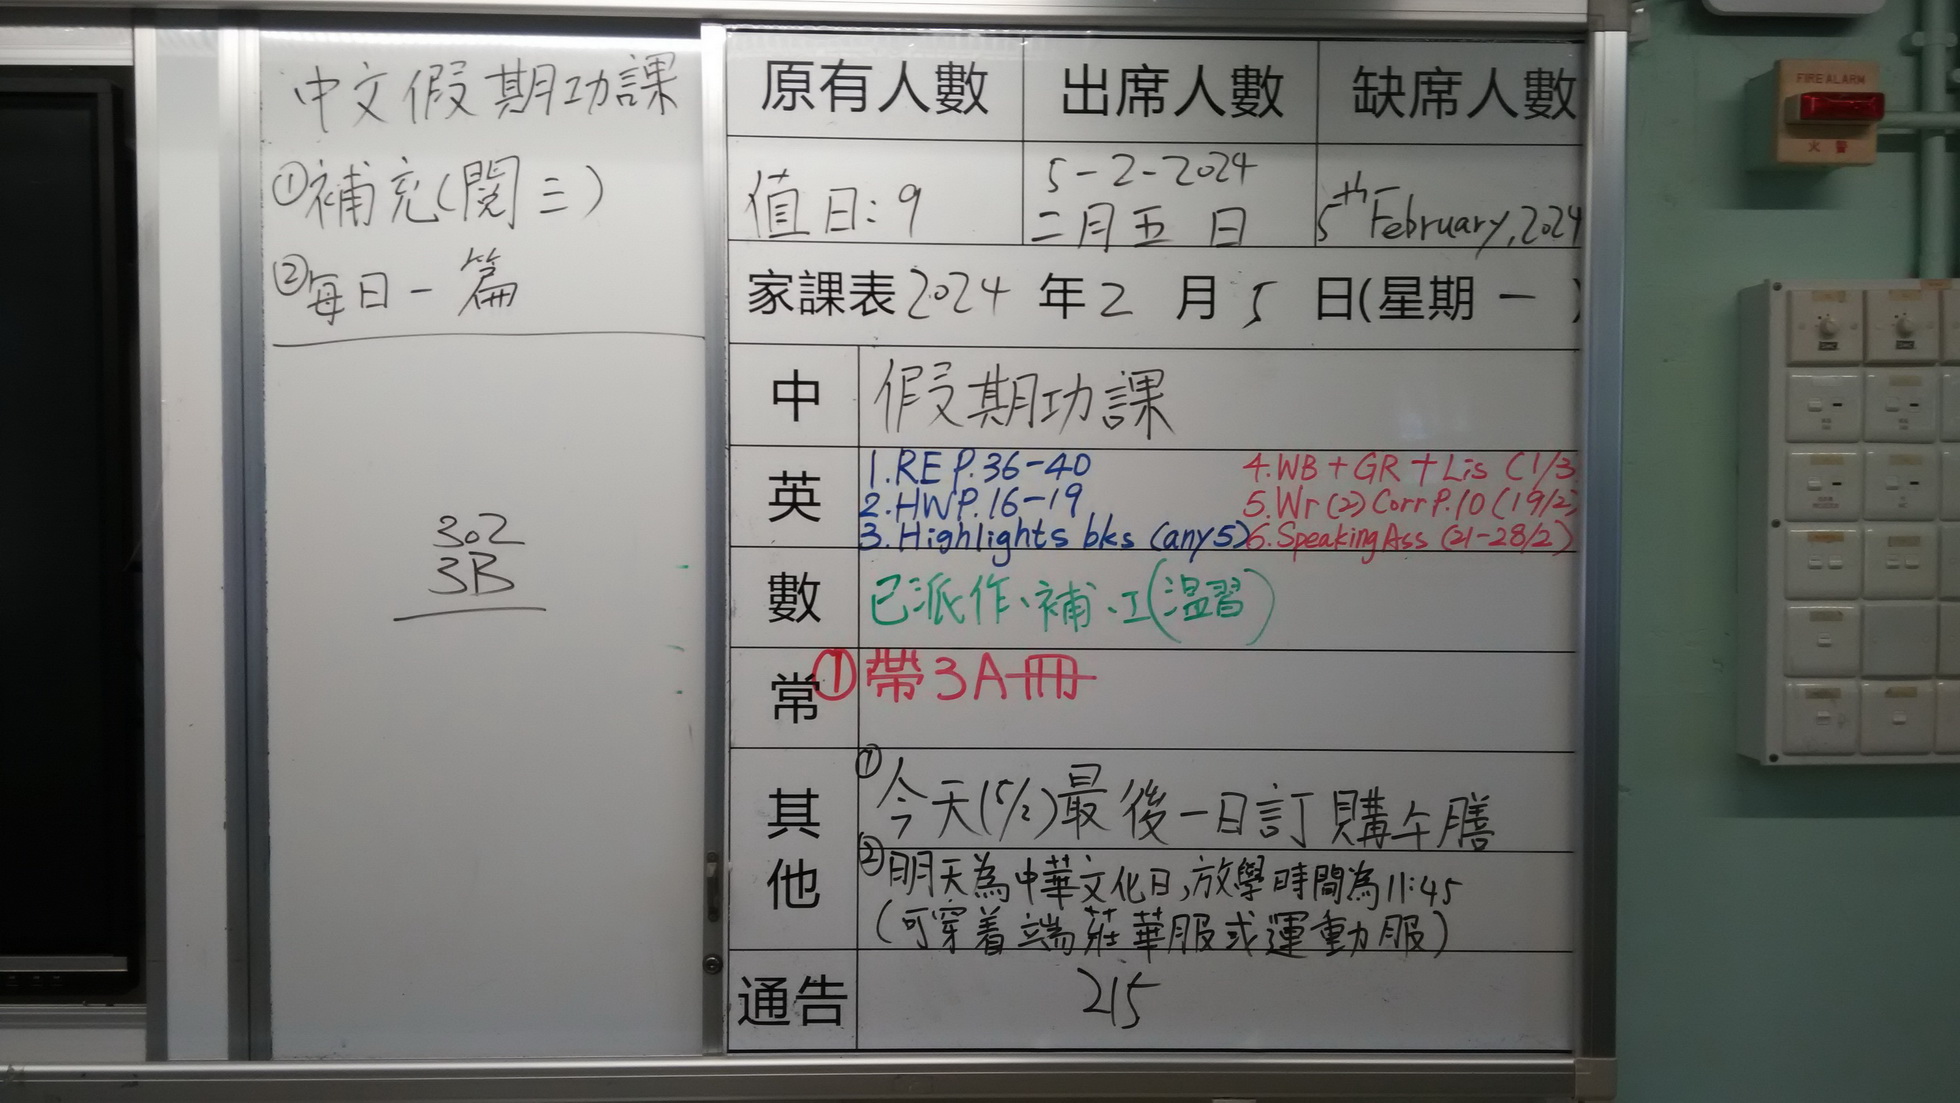 中文假期功課
①補充(閱三)
②每日一篇
302
3B
原有人數 出席人數 缺席人數
值日:9 5-2-2024 5th February, 2024
二月五日
家課表2024年2月5日(星期一)
中 假期功課
英 1.RE P.36-40 4.WB + GR + Lis (1/3
2.HW P.16-19 5.Wr(2) Corr P.10 (19/2)
3.Highlights bks (any5) 6.Speaking Ass (21-28/2)
數 已派作、補、工(溫習)
常 ①帶3A冊
其他 ①今天(5/2)最後一日訂購午膳
②明天為中華文化日,放學時間為11:45
(可穿着端莊華服或運動服)
通告 215
FIRE ALARM
火警